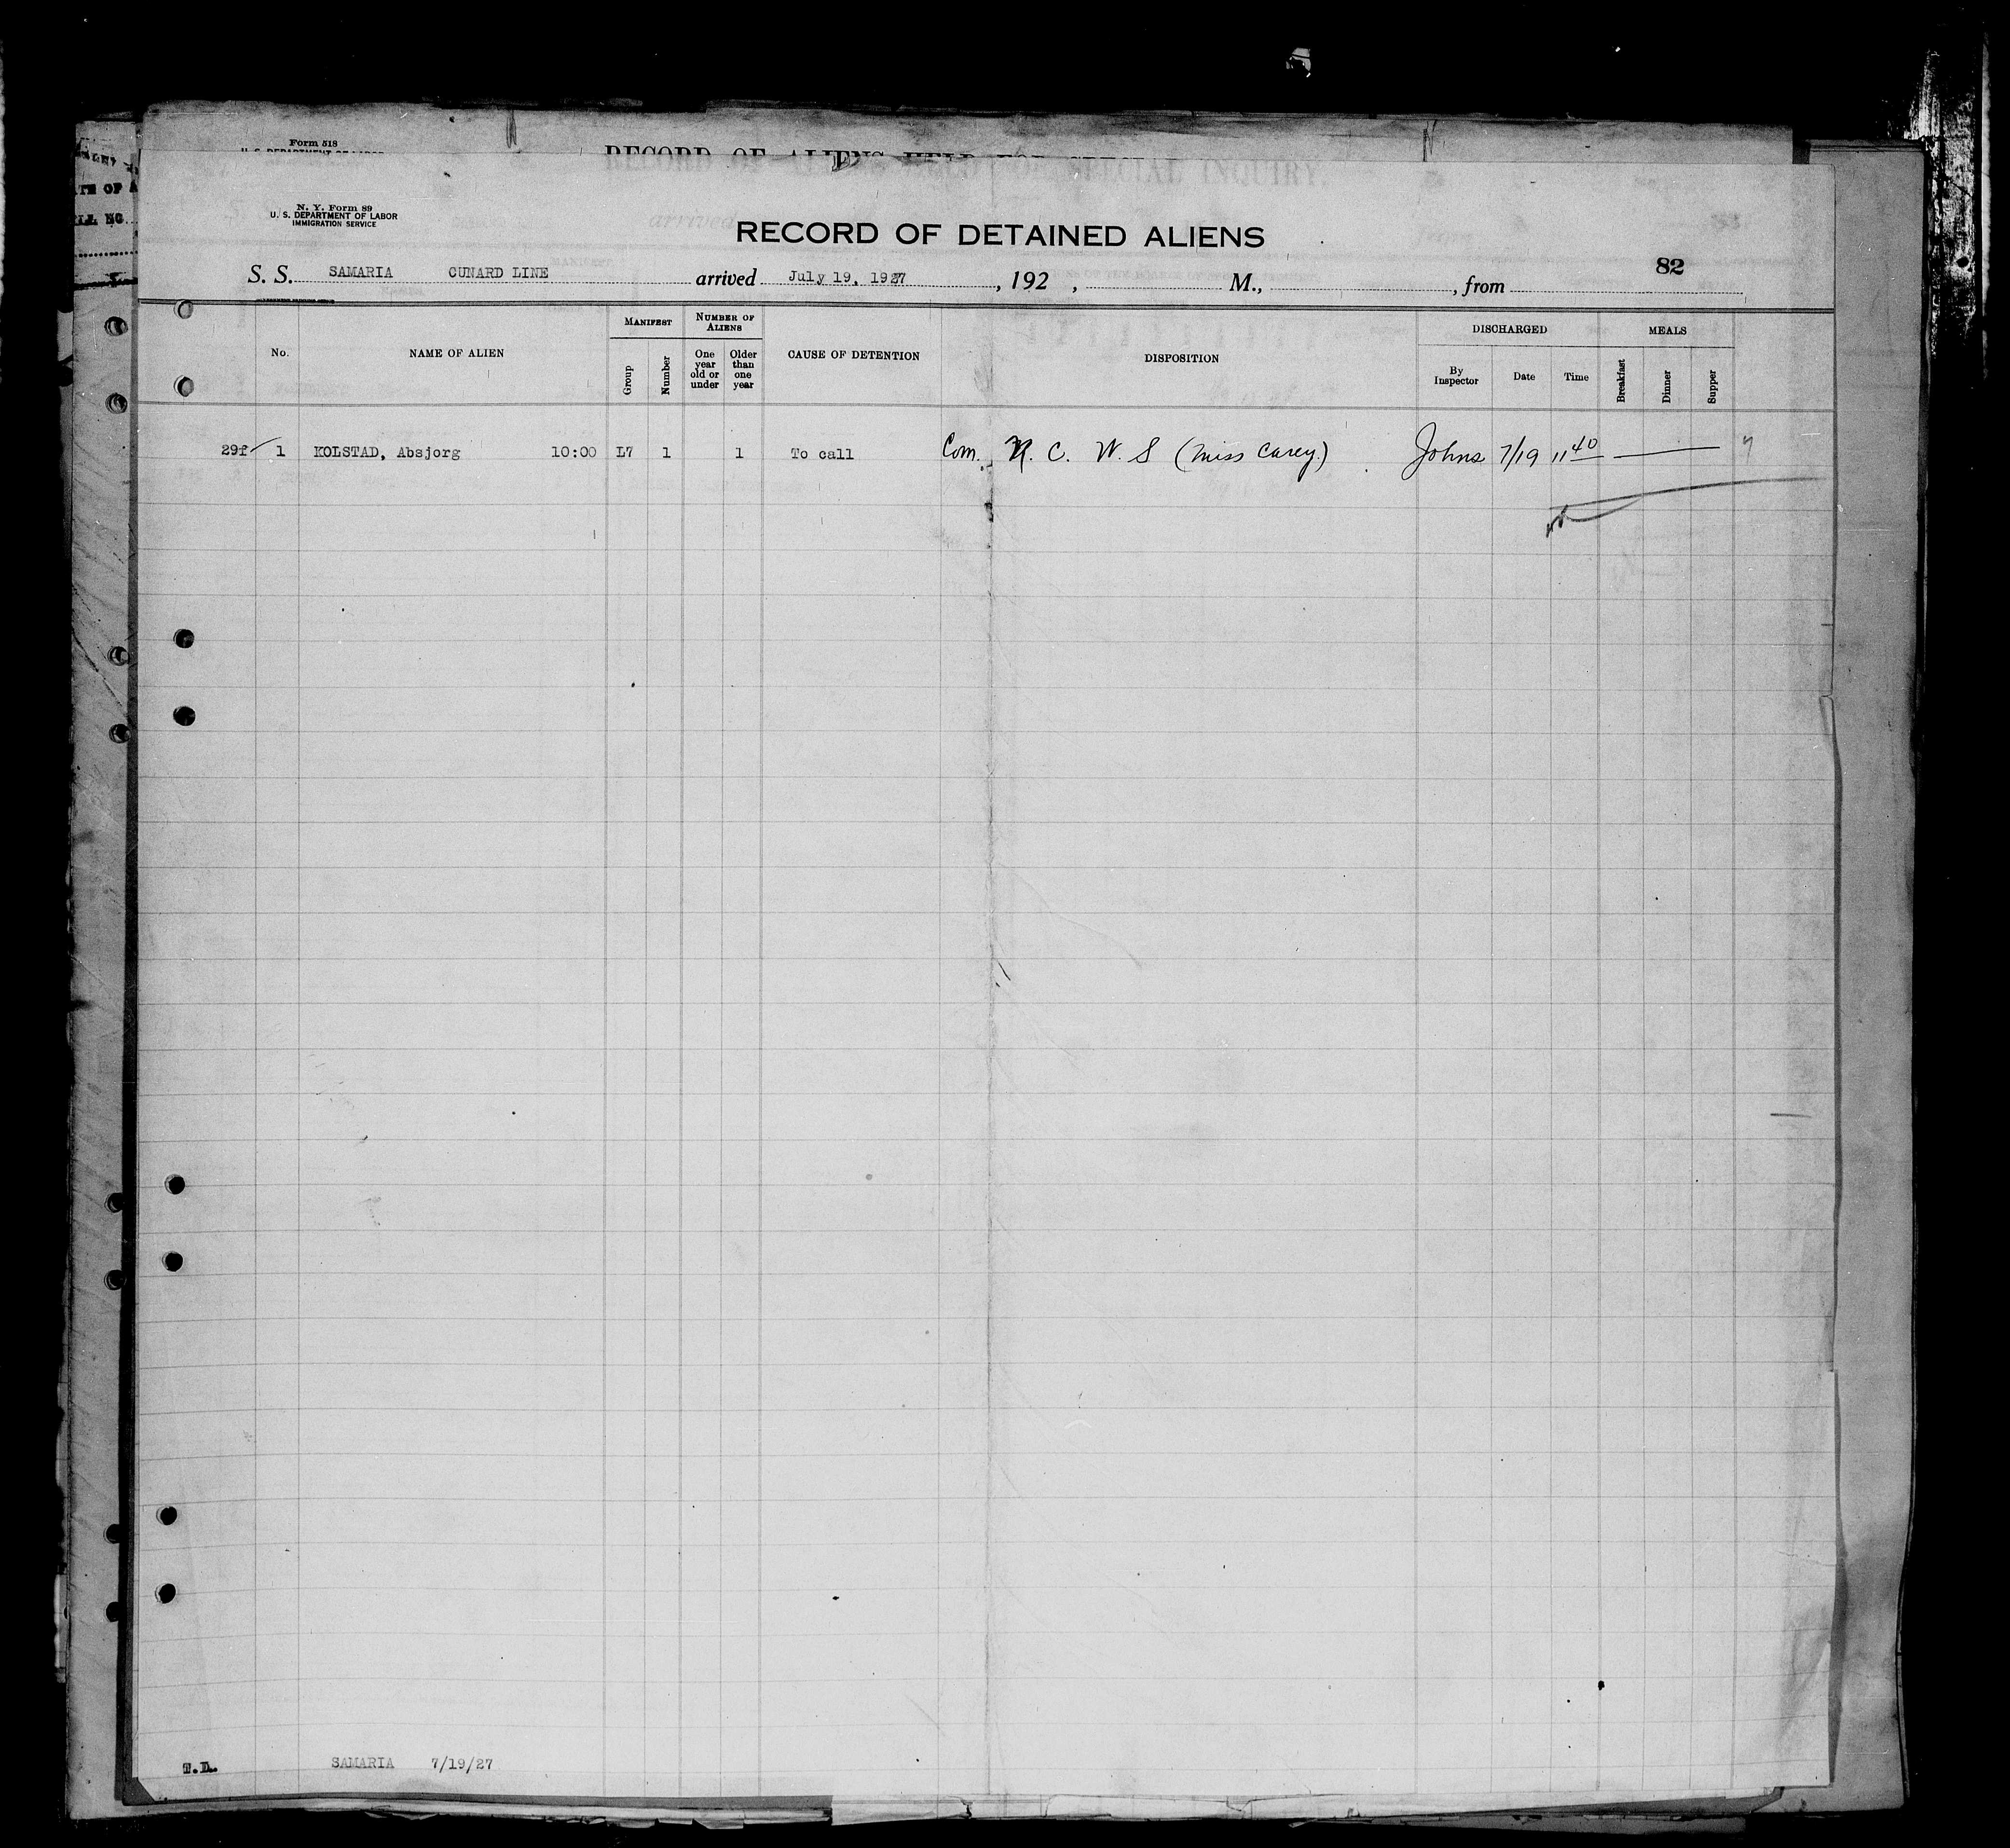 Form 518
RECORD OF ALIENS HELD FOR SPECIAL INQUIRY.
N. Y. Form 89
U. S. DEPARTMENT OF LABOR
IMMIGRATION SERVICE
RECORD OF DETAINED ALIENS
82
S. S. SAMARIA CUNARD LINE arrived July 19, 1927, 192 , M., , from
No. NAME OF ALIEN MANIFEST Group Number NUMBER OF ALIENS One year old or under Older than one year CAUSE OF DETENTION DISPOSITION DISCHARGED By Inspector Date Time MEALS Breakfast Dinner Supper
29f 1 KOLSTAD, Absjorg 10:00 L7 1 1 To call Com. N. C. W. S (Miss Carey) Johns 7/19 11 40
T.D. SAMARIA 7/19/27